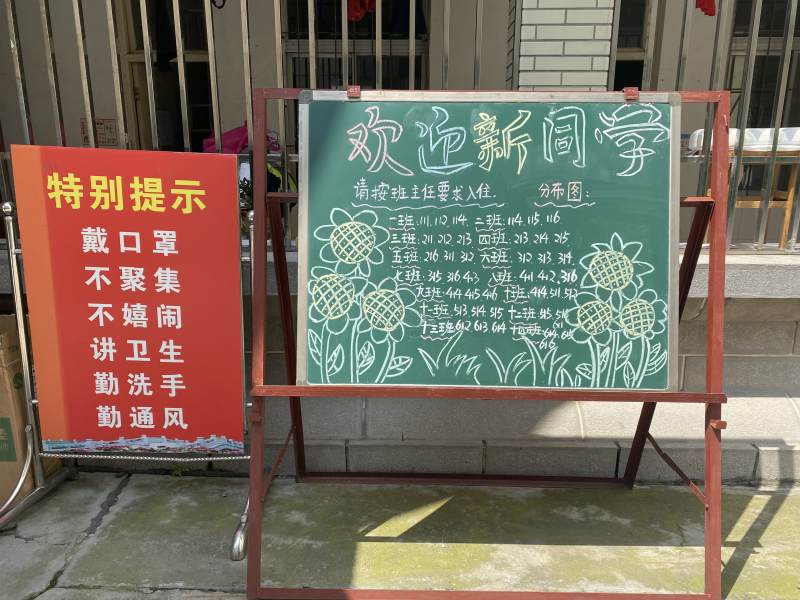 特别提示
戴口罩
不聚集
不嬉闹
讲卫生
勤洗手
勤通风
欢迎新同学
请按班主任要求入住. 分布图:
一班:111.112.114. 二班:114.115.116.
三班:211 212 213 四班:213.214 215
五班:216 311 312 六班:312 313 314
七班:315 316 413 八班:411 412.316
九班:414 415 416 十班:414.511.512
十一班:513 514 515 十二班:515 516
十三班:612 613 614 十四班:614.615
616